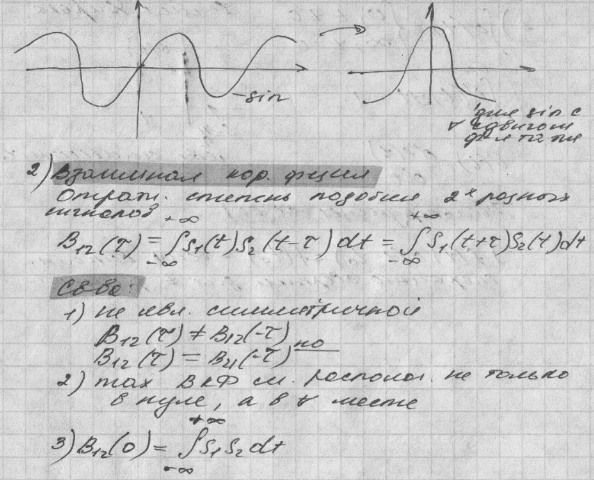 -sin
для sin с
∀ сдвигом
фильтация
2) Взаимная кор. функция
Отраж. степень подобия 2х разных
сигналов
B₁₂(τ) = ∫₋∞⁺∞ S₁(t)S₂(t-τ)dt = ∫₋∞⁺∞ S₁(t+τ)S₂(t)dt
Св-ва:
1) не явл. симметричной
B₁₂(τ) ≠ B₁₂(-τ) но
B₁₂(τ) = B₂₁(-τ)
2) max ВКФ м. располог. не только
в нуле, а в ∀ месте
3) B₁₂(0) = ∫₋∞⁺∞ S₁S₂dt